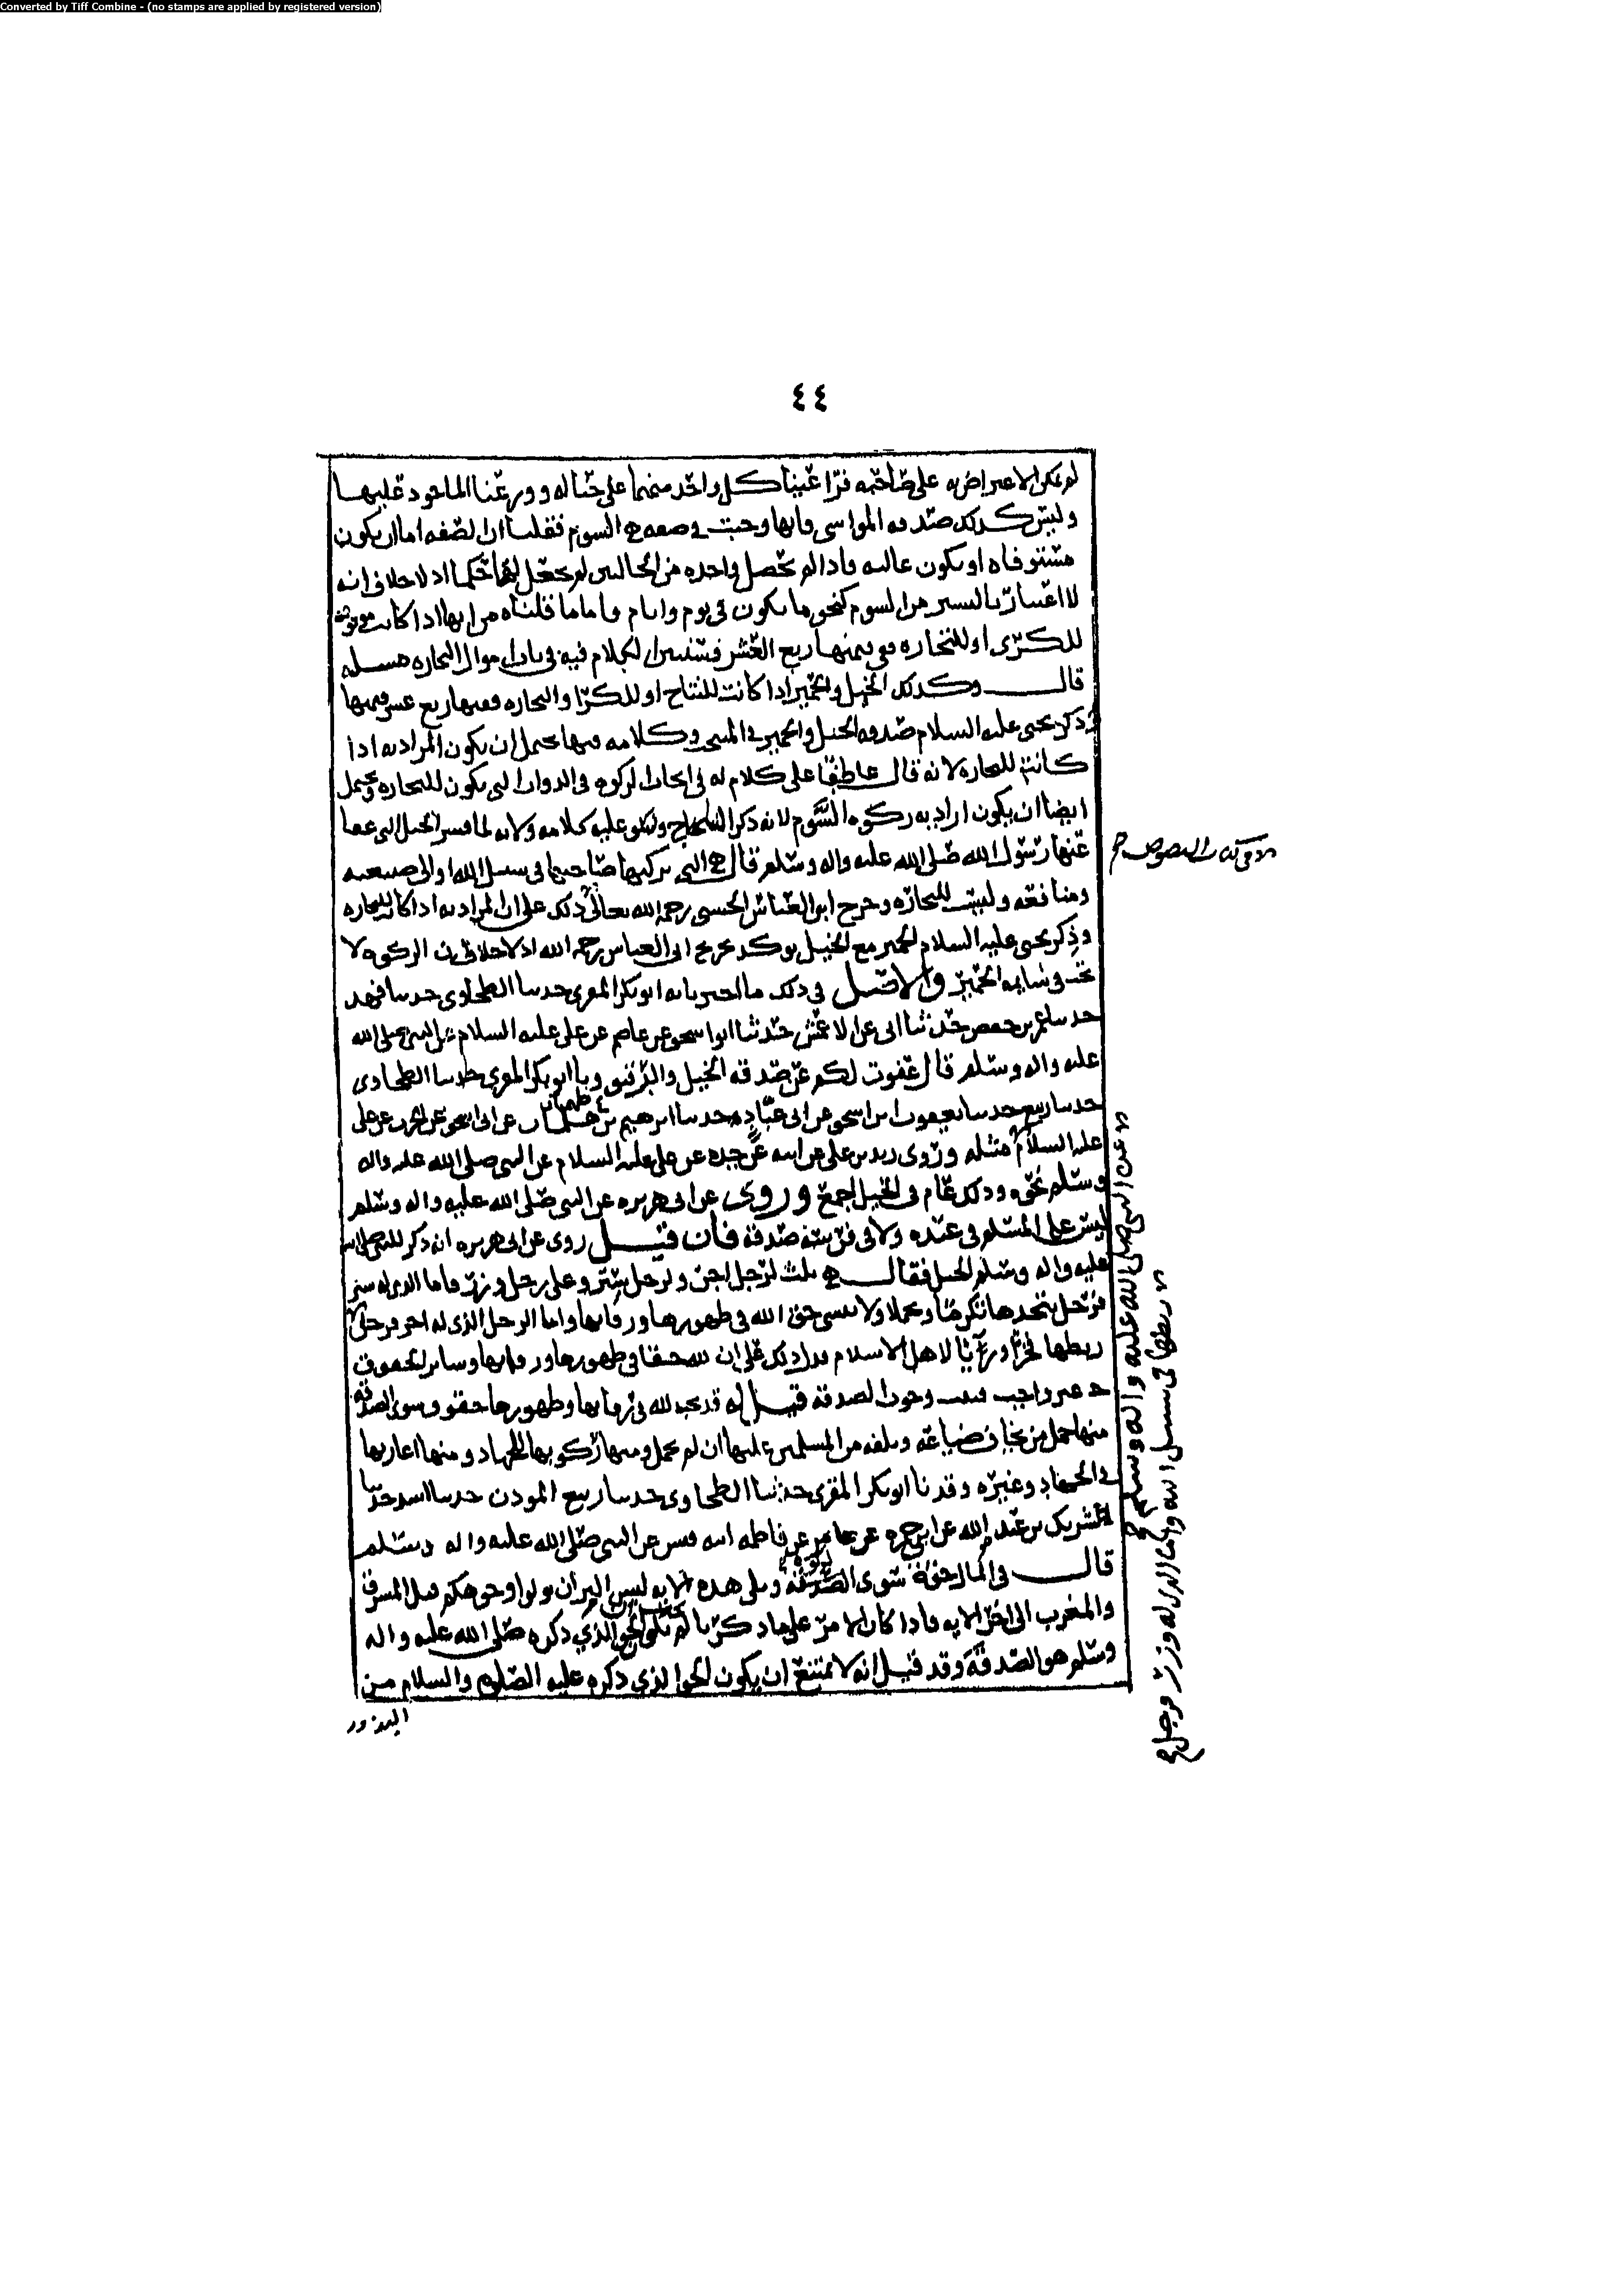 Converted by Tiff Combine - (no stamps are applied by registered version)
٤٤
لم يمكن الاعتراض به على صاحبه فراعينا كل واحد منهما على حياله ووزعنا الماخوذ عليهما
وليس كذلك صدقه المواشي فانها وجبت في وصفه هي السوم فقلنا ان الصفه اما ان يكون
مستوفاه او يكون غالبه فاذا لم تحصل واحده من الحالتين لم يجعل لها حكما اذ لا خلاف انه
لا اعتبار باليسير من السوم كنحو ما يكون في يوم وايام واما ما قلناه من انها اذا كانت
للكرى او للتجاره ففي قيمتها ربع العشر فسنبين الكلام فيه في باب اموال التجاره مسله
قال وكذلك الخيل والحمير اذا كانت للنتاج او للكرا والتجاره ففيها ربع عشر قيمتها
ذكر يحيى عليه السلام صدقه الخيل والحمير في المنتخب وكلامه فيها يحتمل ان يكون المراد به اذا
كانت للتجاره لانه قال عاطفا على كلام له في ايجاب الزكوه في الدواب التي يكون للتجاره ويحتمل
ايضا ان يكون اراد به زكوه السوم لانه ذكر النتاج عليه كلامه ولانه لما فسر الخيل التي عفا
عنها رسول الله صلى الله عليه واله وسلم قال هي التي يركبها صاحبها في سبيل الله او الى ضيعته
ومنافعه وليست للتجاره وخرج ابو العباس الحسني رحمه الله تعالى ذلك على ان المراد به اذا كانت للتجاره
وذكر يحيى عليه السلام الحمير مع الخيل يوكد تخريج ابي العباس رحمه الله اذ لا خلاف ان الزكوه لا
تجب في سايمه الحمير والاصل في ذلك ما اخبرنا به ابو بكر المقري حدثنا الطحاوي حدثنا فهد
حدثنا عمر بن حفص حدثنا ابي عن الاعمش حدثنا ابو اسحق عن عاصم عن علي عليه السلام عن النبي صلى الله
عليه واله وسلم قال عفوت لكم عن صدقه الخيل والرقيق ونا ابو بكر المقري حدثنا الطحاوي
حدثنا ربيع حدثنا يعقوب ابن اسحق عن ابي عباد حدثنا ابرهيم بن طهمان عن ابي اسحق عن الحرث عن علي
عليه السلام مثله وروى زيد بن علي عن ابيه عن جده عن علي عليه السلام عن النبي صلى الله عليه واله
وسلم نحوه وذلك عام في الخيل اجمع وروى عن ابي هريره عن النبي صلى الله عليه واله وسلم
ليس على المسلم في عبده ولا في فرسه صدقه فان قيل روى عن ابي هريره انه ذكر للنبي صلى الله
عليه واله وسلم الخيل فقال هي ثلث لرجل اجر ولرجل ستر وعلى رجل وزر فاما الذي له ستر
فرجل يتخذها تكرما وتجملا ولا ينسى حق الله في ظهورها ورقابها واما الرجل الذي له اجر فرجل
ربطها فخرا ورئايا لاهل الاسلام فدل ذلك على ان لله حقا في ظهورها ورقابها وساير الحقوق
غير واجب فثبت وجوب الصدقه قيل له قد يجب لله في رقابها وظهورها حقوق سوى الصدقه
منها حمل من يخاف ضياعه وتلفه من المسلمين عليها ان لم يحمل ومنها ركوبها للجهاد ومنها اعارتها
في الجهاد وغيره وقد نا ابو بكر المقري حدثنا الطحاوي حدثنا ربيع الموذن حدثنا اسد حدثنا
شريك بن عبد الله عن ابي حمزه عن عامر عن فاطمه ابنه قيس عن النبي صلى الله عليه واله وسلم
قال في المال حق سوى الصدقه وتلى هذه الايه ليس البر ان تولوا وجوهكم قبل المشرق
والمغرب الى اخر الايه فاذا كان الامر على ما ذكرنا لم يكن الحق الذي ذكره صلى الله عليه واله
وسلم هو الصدقه وقد قيل انه لا يمتنع ان يكون الحق الذي ذكره عليه الصلوه والسلام من
عن النبي صلى الله عليه واله وسلم
ربطها في سبيل الله واما الذي له وزر فرجل